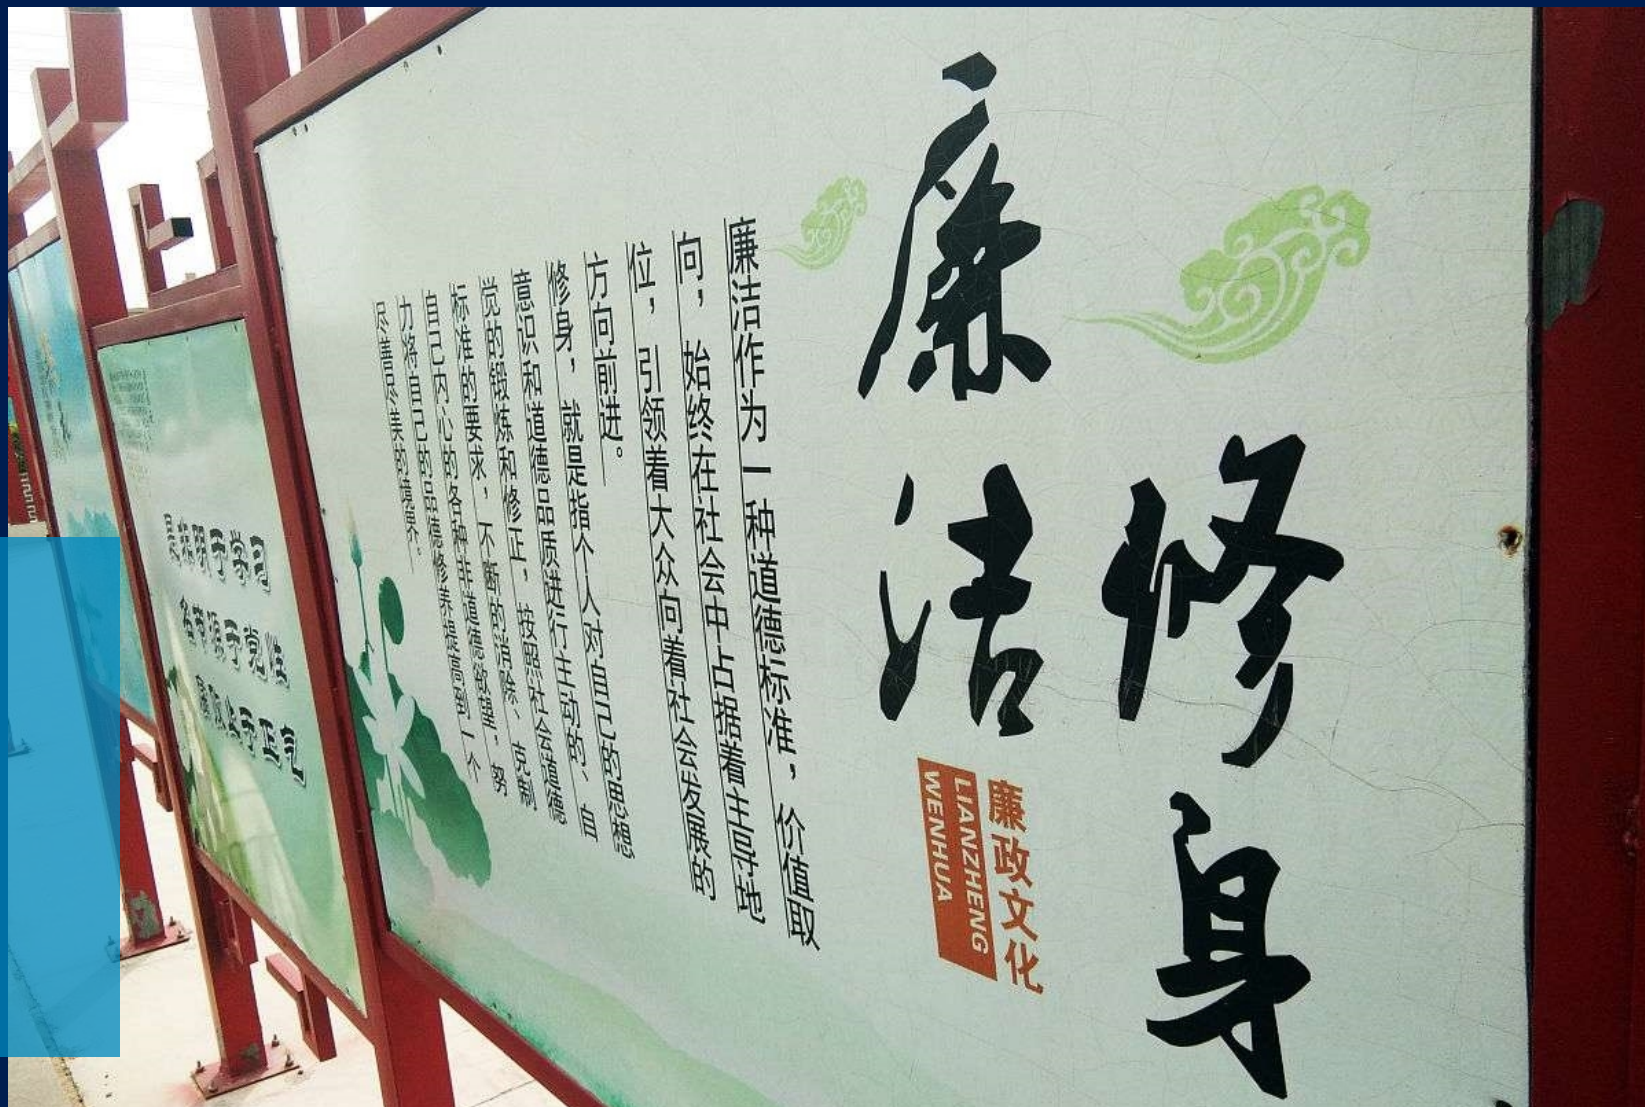 修身
廉洁
廉政文化
LIANZHENG
WENHUA
廉洁作为一种道德标准，价值取
向，始终在社会中占据着主导地
位，引领着大众向着社会发展的
方向前进。
修身，就是指个人对自己的思想
意识和道德品质进行主动的、自
觉的锻炼和修正，按照社会道德
标准的要求，不断的消除、克制
自己内心的各种非道德欲望，努
力将自己的品德修养提高到一个
尽善尽美的境界。
是非明于学习
名节源于党性
腐败止于正气